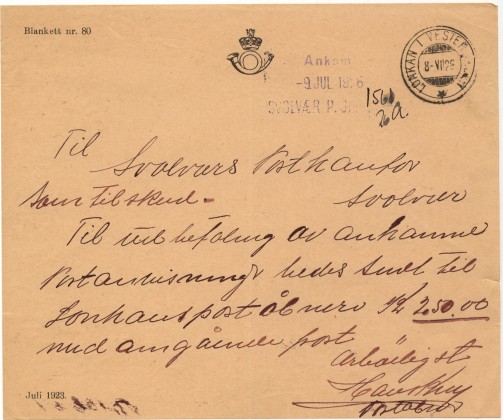 Blankett nr. 80
Ankom
-9 JUL 1926
SVOLVÆR P.
LONKAN I VESTER
8-VII 26
1561
26.
Til
Svolværs Postkontor
Som tilskud - Svolvær
Til utbetaling av ankomne
Postanvisninger bedes sendt til
Lonkans postaabneri Kr 250.00
med omgående post
Arbødigst
Juli 1923.